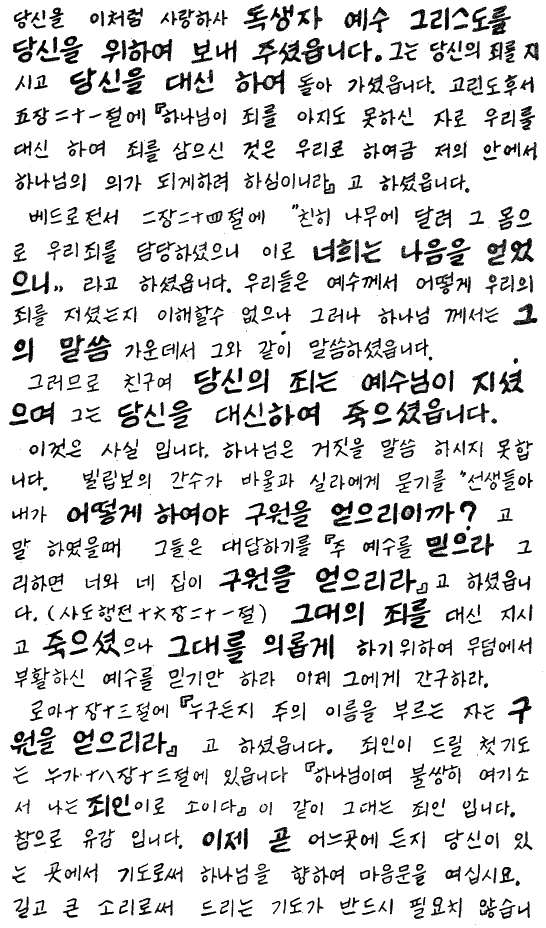 당신을 이처럼 사랑하사 독생자 예수 그리스도를
당신을 위하여 보내 주셨읍니다. 그는 당신의 죄를 지
시고 당신을 대신 하여 돌아 가셨읍니다. 고린도후서
五장二十一절에 『하나님이 죄를 아지도 못하신 자로 우리를
대신 하여 죄를 삼으신 것은 우리로 하여금 저의 안에서
하나님의 의가 되게하려 하심이니라』 고 하셨읍니다.
베드로전서 二장二十四절에 "친히 나무에 달려 그 몸으
로 우리죄를 담당하셨으니 이로 너희는 나음을 얻었
으니" 라고 하셨읍니다. 우리들은 예수께서 어떻게 우리의
죄를 저셨는지 이해할수 없으나 그러나 하나님 께서는 그
의 말씀 가운데서 그와 같이 말씀하셨읍니다.
그러므로 친구여 당신의 죄는 예수님이 지셨
으며 그는 당신을 대신하여 죽으셨읍니다.
이것은 사실 입니다. 하나님은 거짓을 말씀 하시지 못합
니다. 빌립보의 간수가 바울과 실라에게 묻기를 "선생들아
내가 어떻게 하여야 구원을 얻으리이까? 고
말 하였을때 그들은 대답하기를 『주 예수를 믿으라 그
리하면 너와 네 집이 구원을 얻으리라』고 하셨읍니
다. (사도행전十六장三十一절) 그대의 죄를 대신 지시
고 죽으셨으나 그대를 의롭게 하기위하여 무덤에서
부활하신 예수를 믿기만 하라 이제 그에게 간구하라.
로마十장十三절에 『누구든지 주의 이름을 부르는 자는 구
원을 얻으리라』 고 하셨읍니다. 죄인이 드릴 첫기도
는 누가十八장十三절에 있읍니다 『하나님이여 불쌍히 여기소
서 나는 죄인이로 소이다』 이 같이 그대는 죄인 입니다.
참으로 유감 입니다. 이제 곧 어느곳에 든지 당신이 있
는 곳에서 기도로써 하나님을 향하여 마음문을 여십시요.
길고 큰 소리로써 드리는 기도가 반드시 필요치 않습니